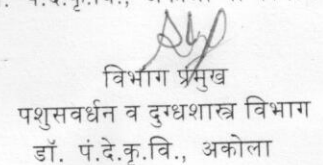 विभाग प्रमुख
पशुसवर्धन व दुग्धशास्त्र विभाग
डॉ. पं.दे.कृ.वि., अकोला